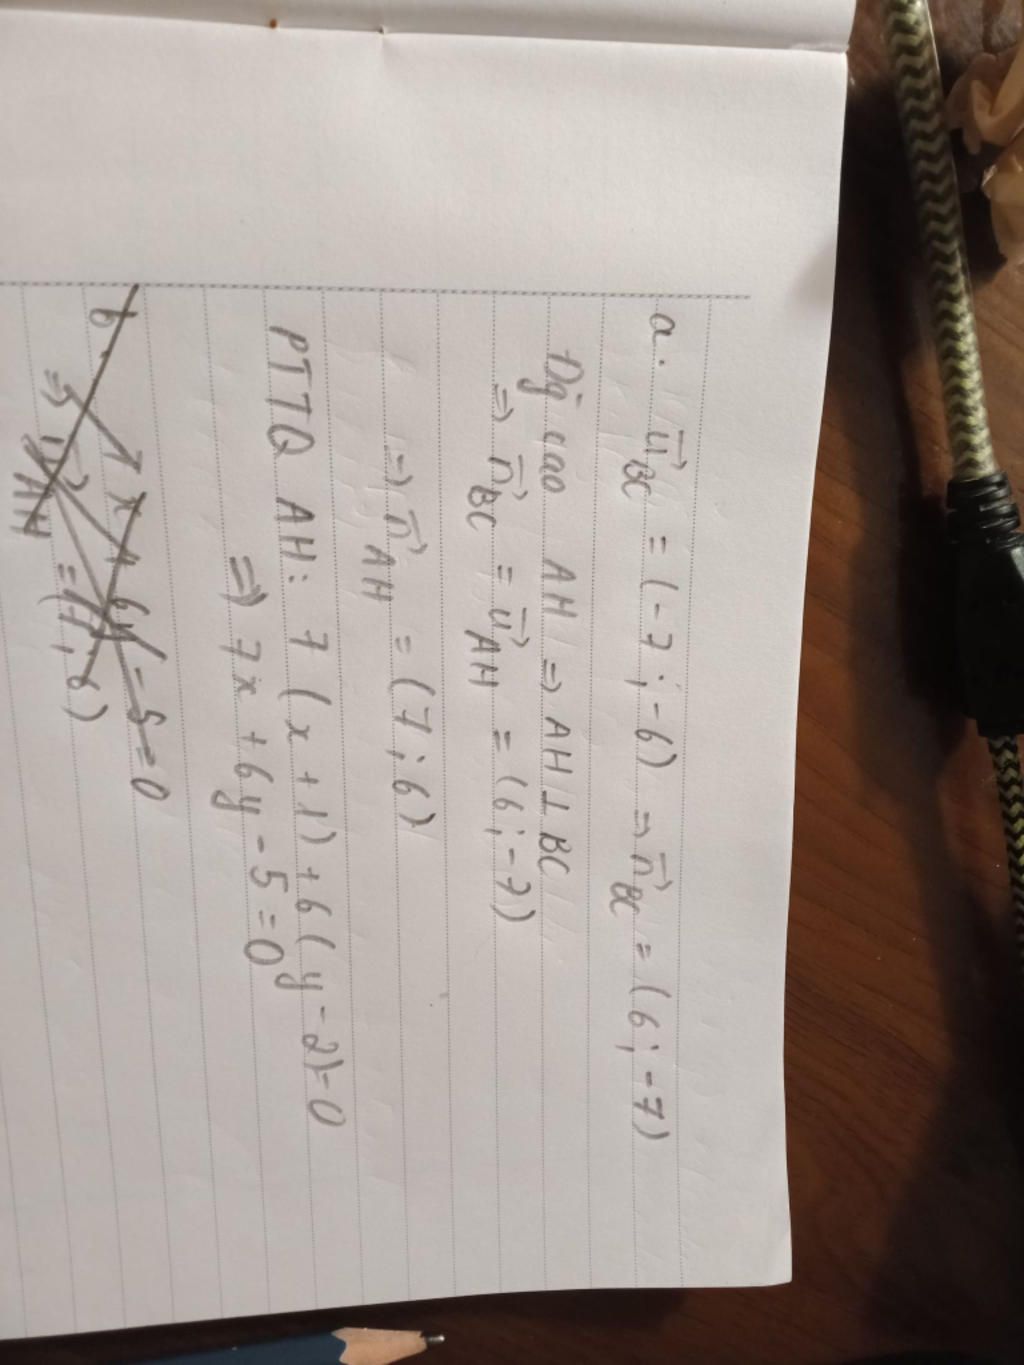 a. u⃗BC = (-7 ; -6) ⇒ n⃗BC = (6 ; -7)
Đg cao AH ⇒ AH ⊥ BC
⇒ n⃗BC = u⃗AH = (6 ; -7)
⇒ n⃗AH = (7 ; 6)
PTTQ AH: 7 (x + 1) + 6 (y - 2) = 0
⇒ 7x + 6y - 5 = 0